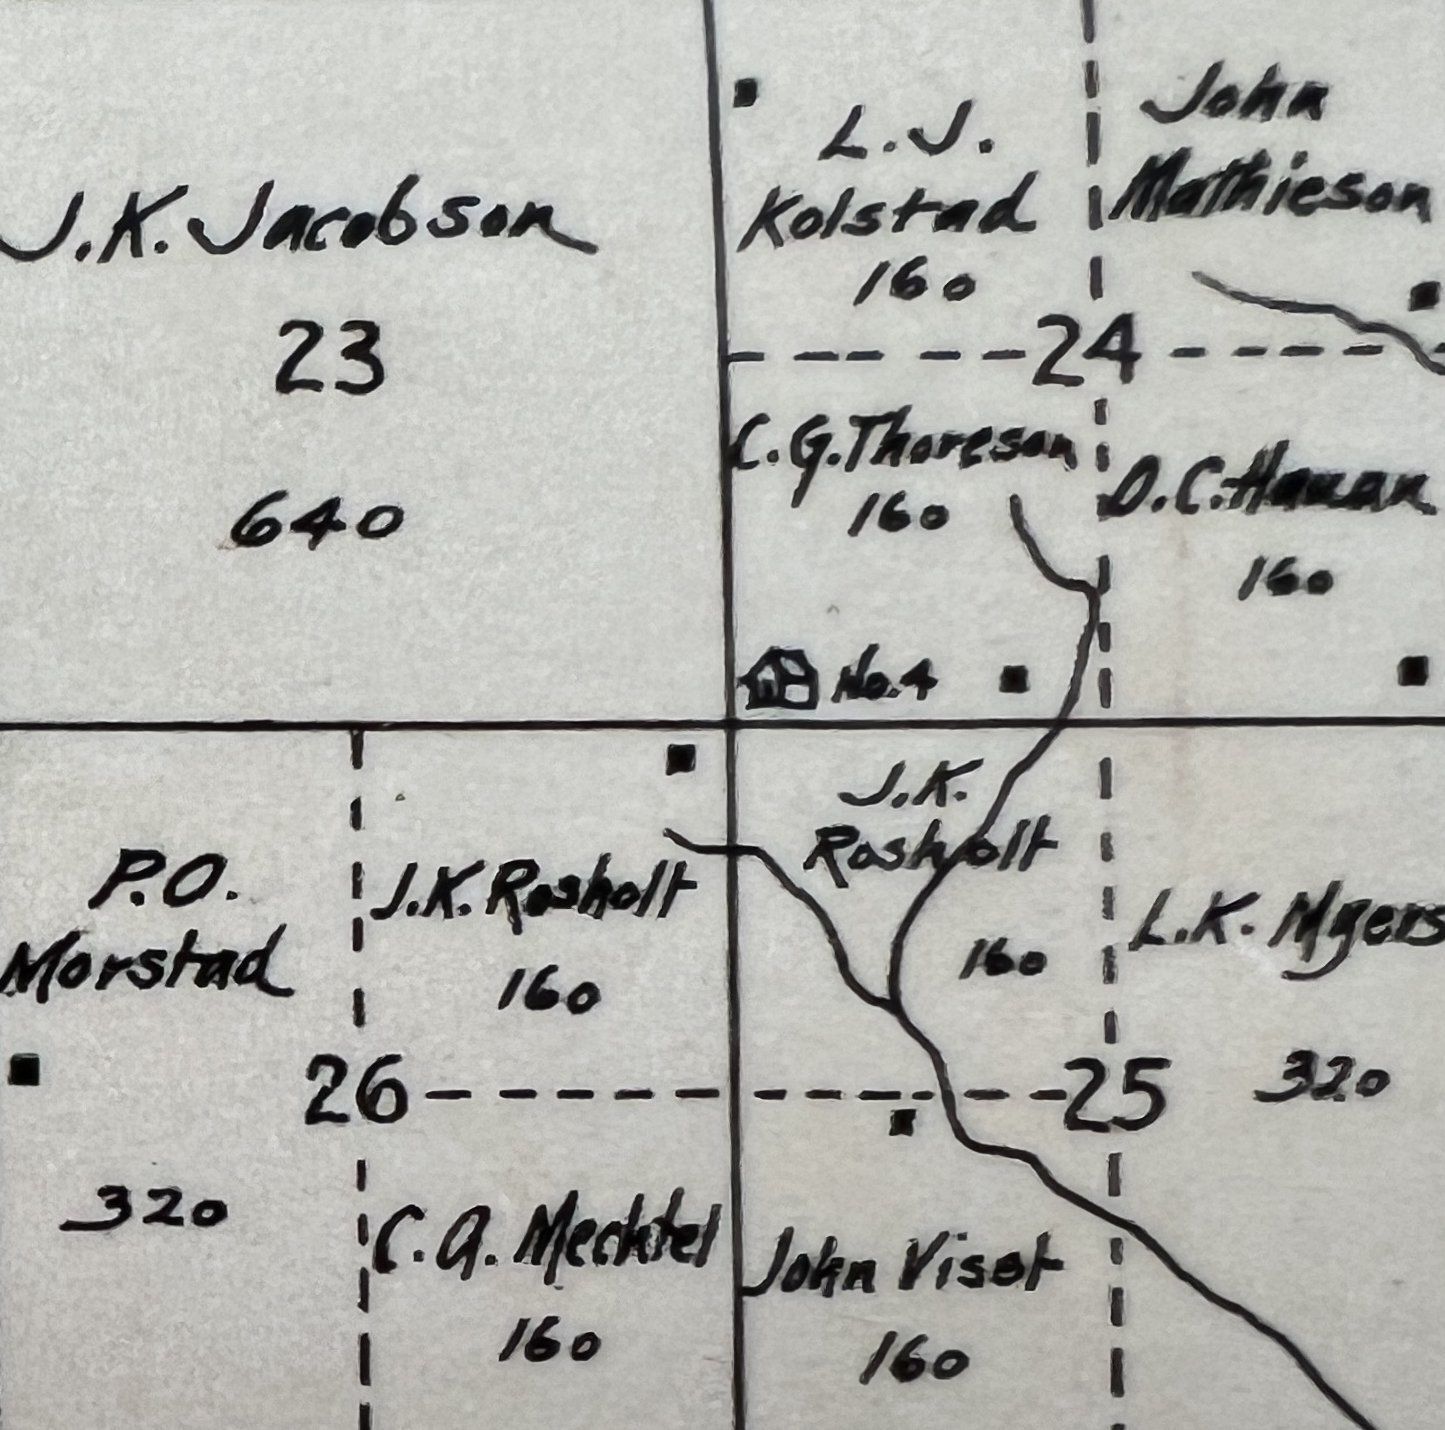 J.K. Jacobson
23
640
L.J.
Kolstad
160
John
Mathieson
24
C.G. Thoreson
160
O.C. Hauan
160
No. 4
P.O.
Morstad
320
J.K. Rosholt
160
26
C.A. Mechtel
160
J.K.
Rosholt
160
L.K. Myers
320
25
John Visst
160